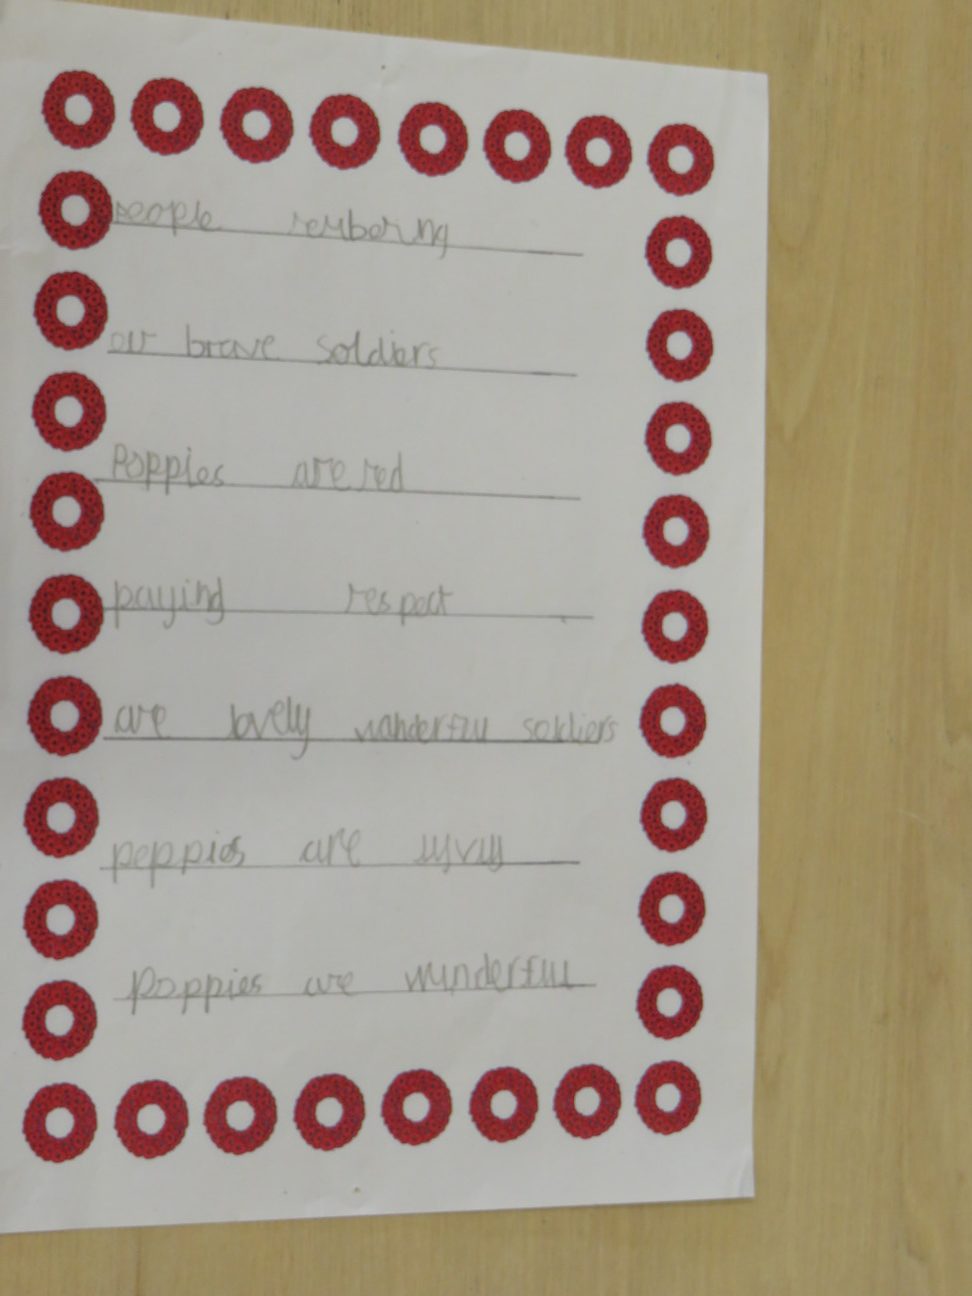 people rembering
our brave soldiers
Poppies are red
paying respect
are lovely wanderful soldiers
peppies are
Poppies are wunderful